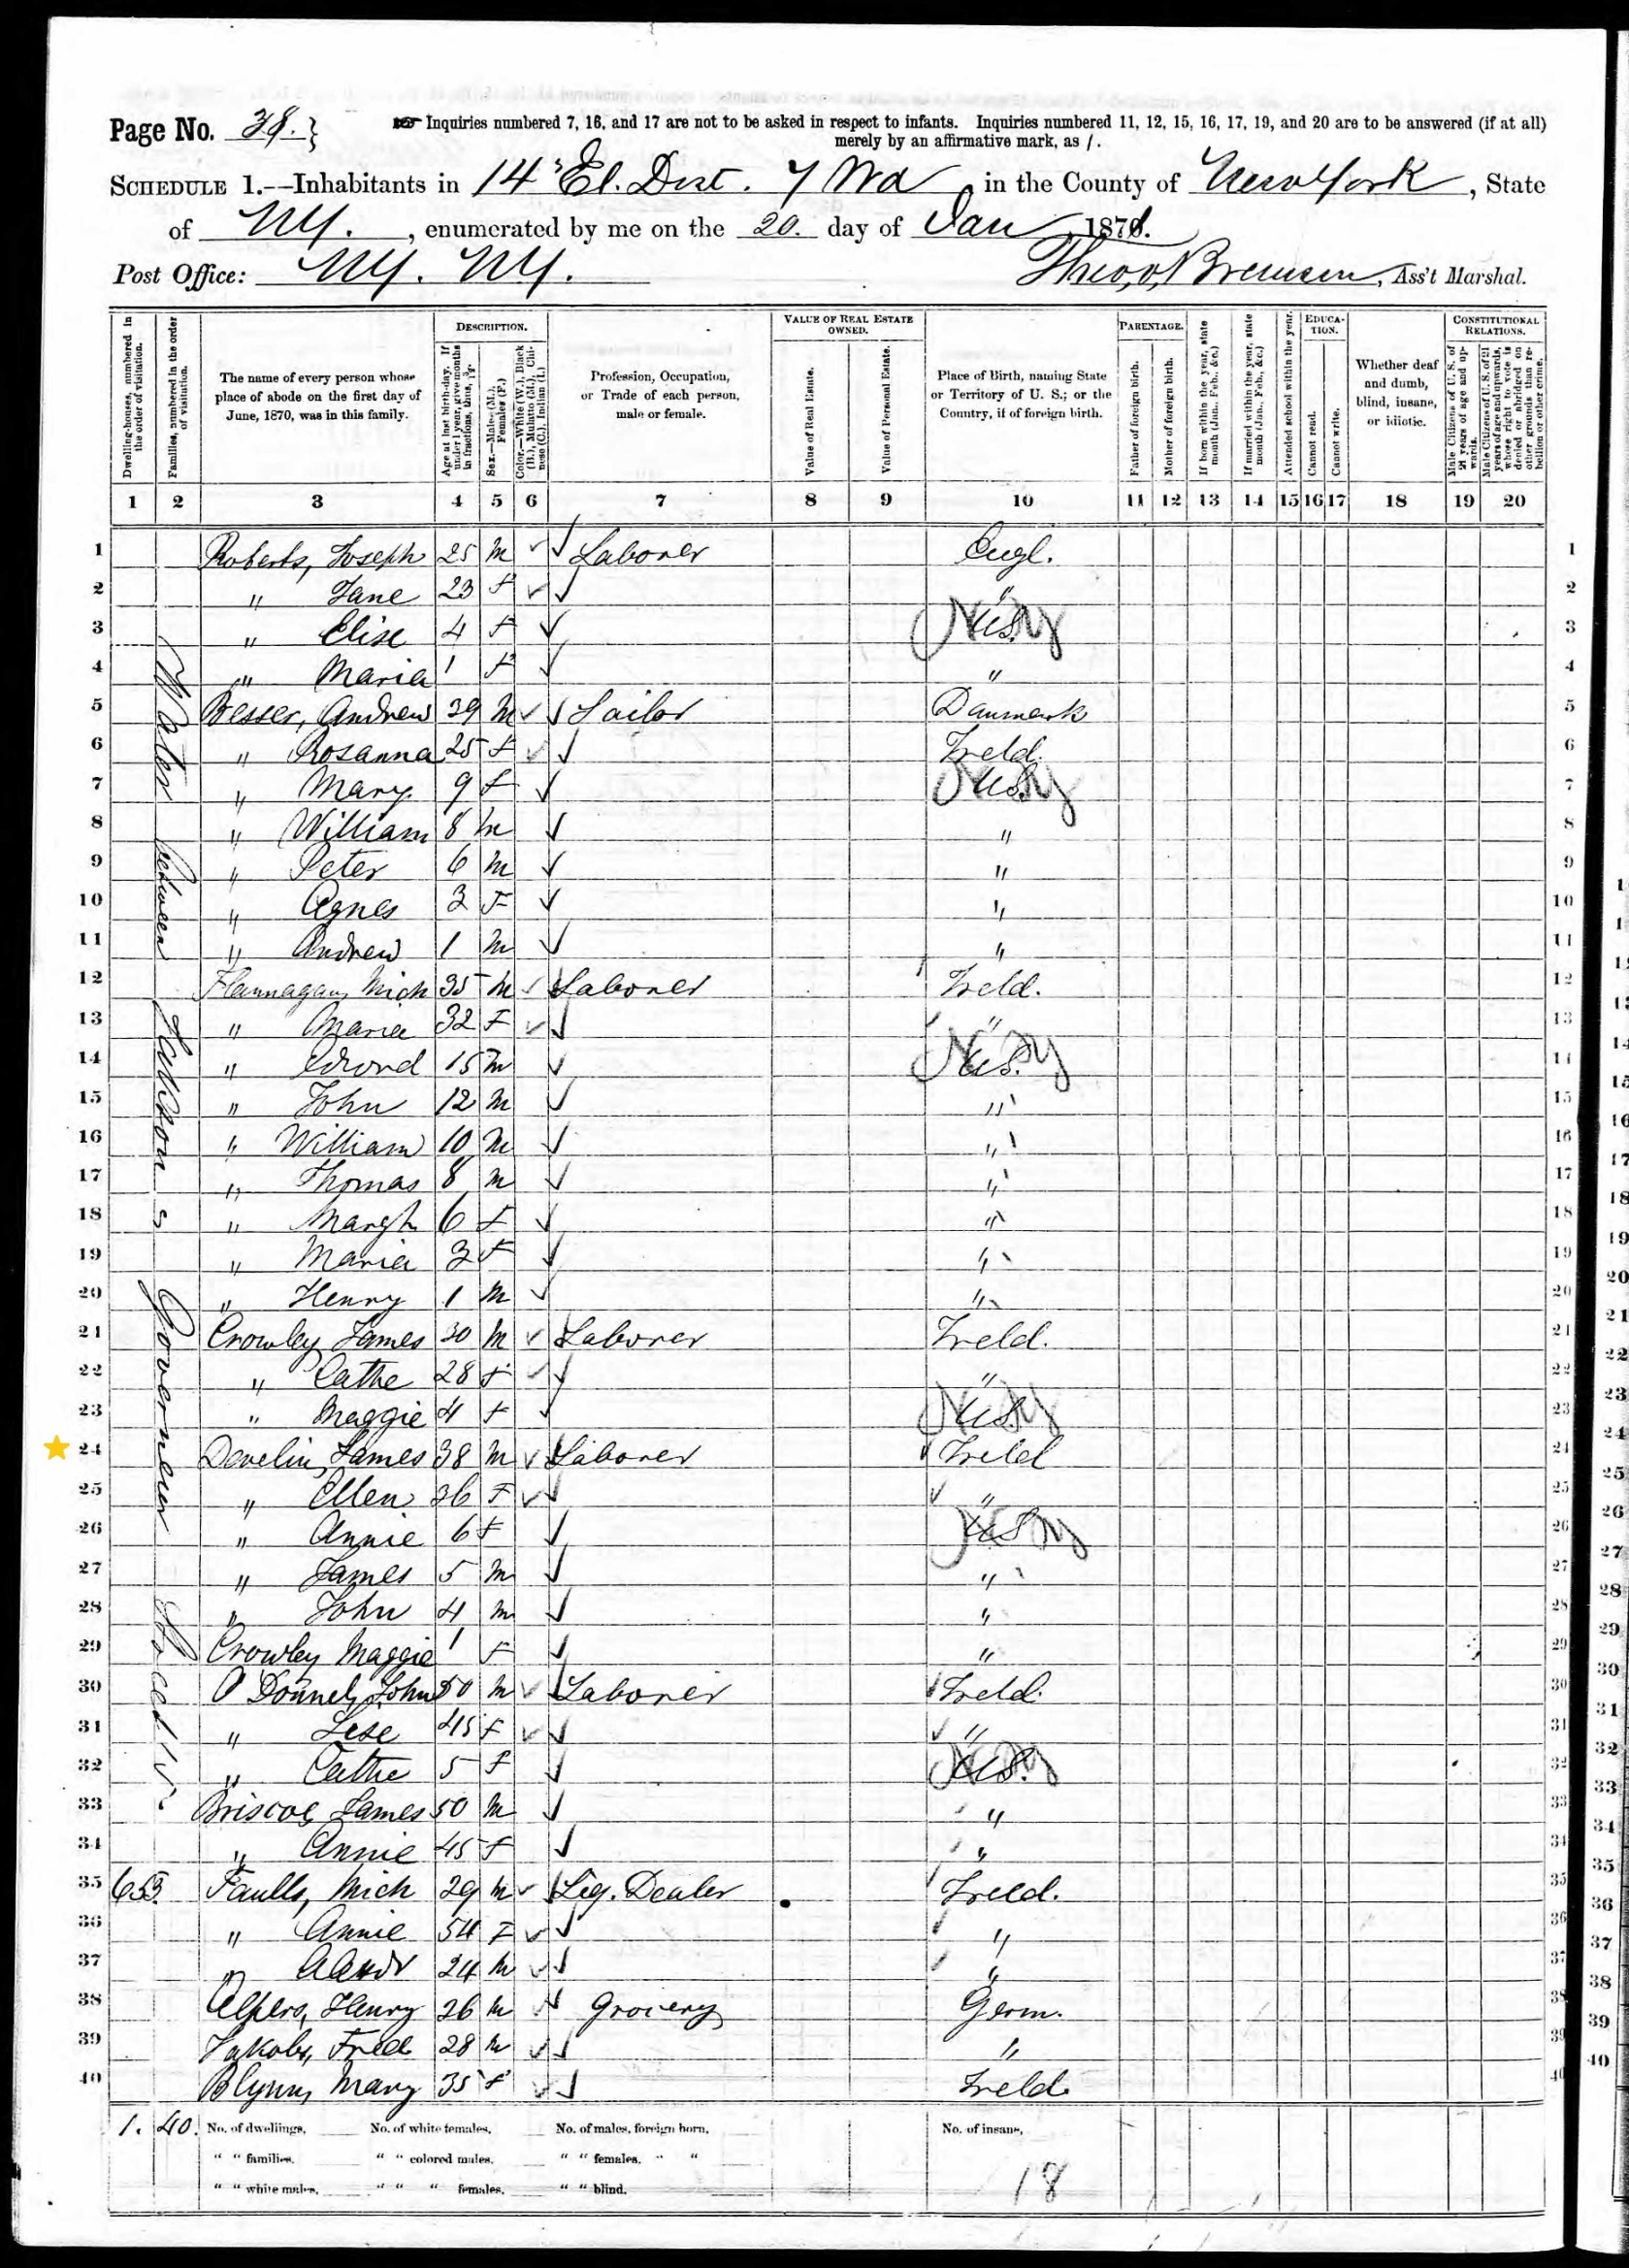 Page No. 38. } Inquiries numbered 7, 16, and 17 are not to be asked in respect to infants. Inquiries numbered 11, 12, 15, 16, 17, 19, and 20 are to be answered (if at all)
merely by an affirmative mark, as /.
SCHEDULE 1.--Inhabitants in 14 El. Dist. 7 Wd, in the County of New York, State
of NY., enumerated by me on the 20. day of Jan 1871.
Post Office: NY. NY. Ass't Marshal.
Dwelling-houses, numbered in the order of visitation.
Families, numbered in the order of visitation.
The name of every person whose place of abode on the first day of June, 1870, was in this family.
DESCRIPTION.
Age at last birth-day. If under 1 year, give months in fractions, thus, 3/12.
Sex.—Males (M.), Females (F.)
Color.—White (W.), Black (B.), Mulatto (M.), Chinese (C.), Indian (I.)
Profession, Occupation, or Trade of each person, male or female.
VALUE OF REAL ESTATE OWNED.
Value of Real Estate.
Value of Personal Estate.
Place of Birth, naming State or Territory of U. S.; or the Country, if of foreign birth.
PARENTAGE.
Father of foreign birth.
Mother of foreign birth.
If born within the year, state month (Jan., Feb., &c.)
If married within the year, state month (Jan., Feb., &c.)
Attended school within the year.
EDUCATION.
Cannot read.
Cannot write.
Whether deaf and dumb, blind, insane, or idiotic.
CONSTITUTIONAL RELATIONS.
Male Citizens of U. S. of 21 years of age and upwards.
Male Citizens of U. S. of 21 years of age and upwards, whose right to vote is denied or abridged on other grounds than rebellion or other crime.
1 2 3 4 5 6 7 8 9 10 11 12 13 14 15 16 17 18 19 20
Water between Jackson & Governeur
1 Roberts, Joseph 25 M Laborer Engl. 1
2 " Jane 23 F " 2
3 " Elise 4 F U.S. NY 3
4 " Maria 1 F " 4
5 Besser, Andrew 39 M Sailor Danmark 5
6 " Rosanna 25 F Ireld. 6
7 " Mary 9 F U.S. NY 7
8 " William 8 M " 8
9 " Peter 6 M " 9
10 " Agnes 3 F " 10
11 " Andrew 1 M " 11
12 Flannagan, Mich 35 M Laborer Ireld. 12
13 " Maria 32 F " 13
14 " Edwond 15 M U.S. NY 14
15 " John 12 M " 15
16 " William 10 M " 16
17 " Thomas 8 M " 17
18 " Margh 6 F " 18
19 " Maria 3 F " 19
20 " Henry 1 M " 20
21 Crowley James 30 M Laborer Ireld. 21
22 " Cathe 28 F " 22
23 " Maggie 4 F U.S. NY 23
24 Develin, James 38 M Laborer Ireld 24
25 " Ellen 36 F " 25
26 " Annie 6 F U.S. NY 26
27 " James 5 M " 27
28 " John 4 M " 28
29 Crowley Maggie 1 F " 29
30 O'Donnel, John 50 M Laborer Ireld. 30
31 " Lise 45 F " 31
32 " Cathe 5 F U.S. NY 32
33 Briscoe, James 50 M " 33
34 " Annie 45 F " 34
35 653. Faulls, Mich 29 M Liq. Dealer Ireld. 35
36 " Annie 54 F " 36
37 " 24 M " 37
38 Alpers, Henry 26 M Grocery Germ. 38
39 Jakobs, Fred 28 M " 39
40 Blynn, Mary 35 F Ireld. 40
1. 40. No. of dwellings, No. of white females, No. of males, foreign born, No. of insane,
" " families, " " colored males, " " females, " "
" " white males, " " " females, " " blind. 18